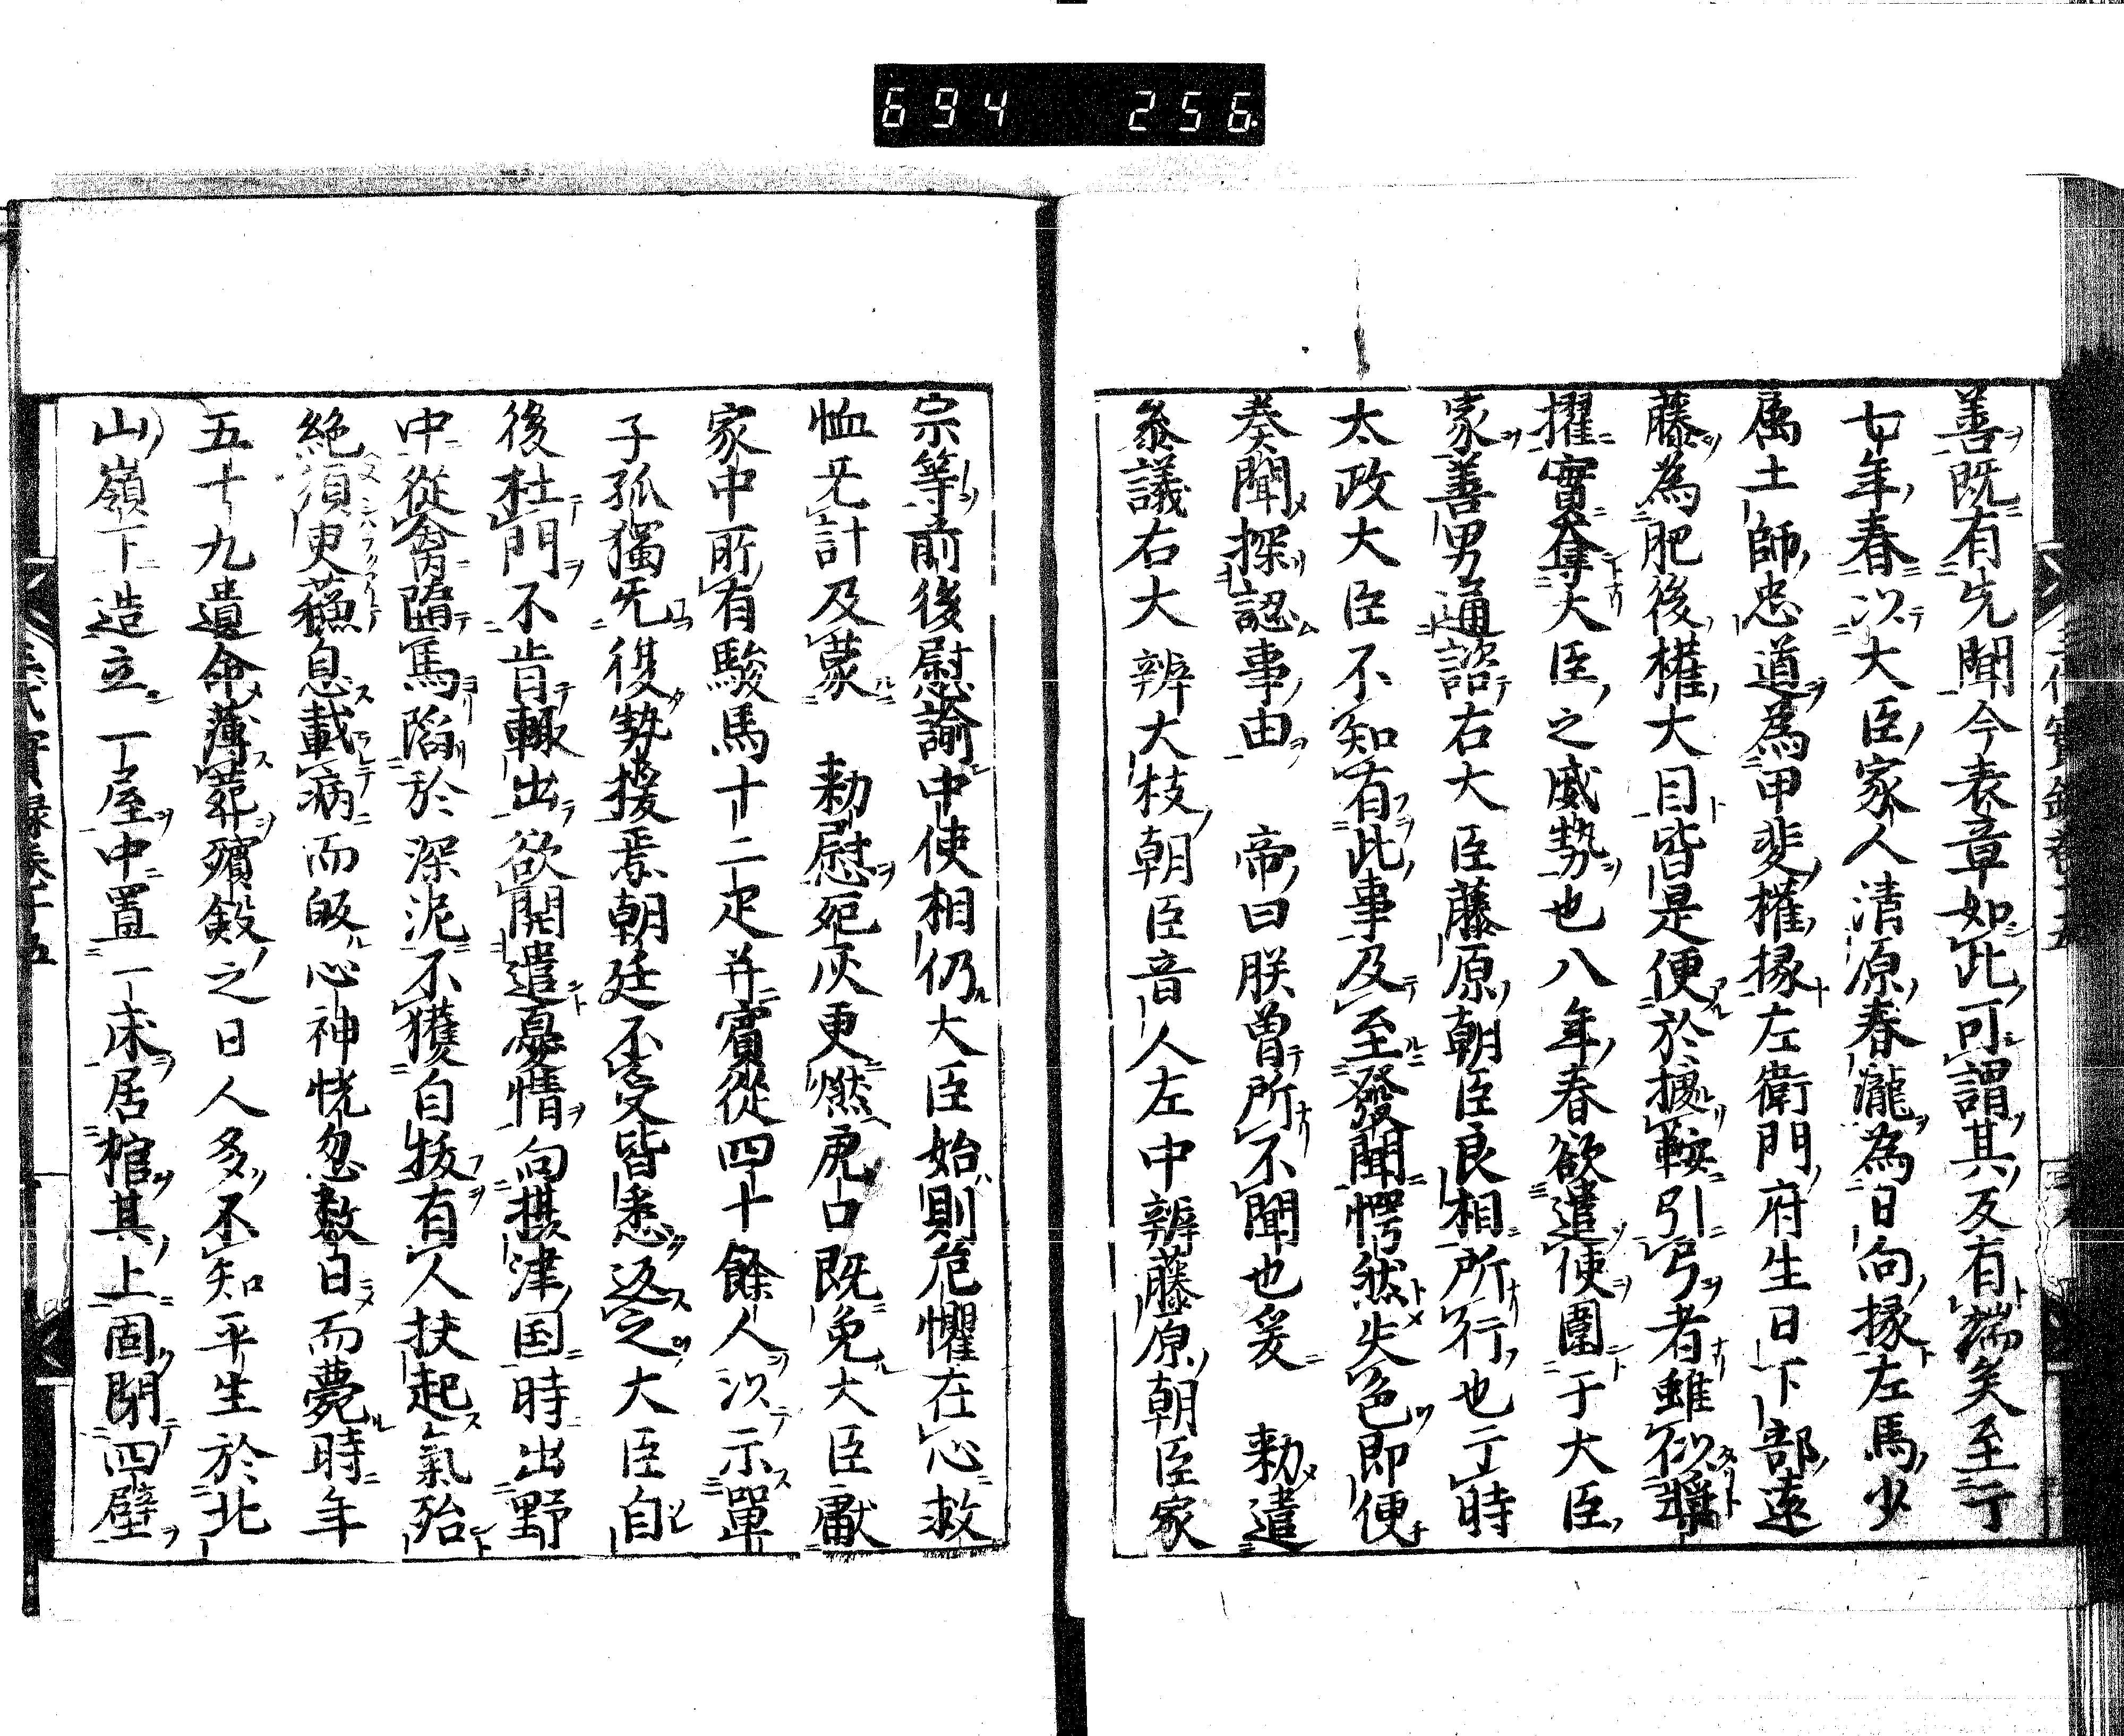 694 256
善既有先聞今表章如此可謂其反有端矣至于
七年春以大臣家人清原春瀧為日向掾左馬少
属土師忠道為甲斐權掾左衛門府生日下部遠
藤為肥後權大目皆是便於據鞍引弓者雖似奬
擢實奪大臣之威勢也八年春欲遣使圍于大臣
家善男通諮右大臣藤原朝臣良相所行也于時
太政大臣不知有此事及至發聞愕然失色即便
奏聞探認事由　帝曰朕曽所不聞也爰　勅遣
參議右大辨大枝朝臣音人左中辨藤原朝臣家
宗等前後慰諭中使相仍大臣始則危懼在心救
恤无計及蒙　勅慰死灰更燃虎口既免大臣獻
家中所有駿馬十二疋并賓從四十餘人以示單
子孤獨无復勢援焉朝廷不受皆悉返之大臣自
後杜門不肯輙出欲開遣憂情向攝津国時出野
中從禽墮馬陷於深泥不獲自拔有人扶起氣殆
絶須更蘓息載病而皈心神恍忽數日而薨時年
五十九遺命薄葬殯斂之日人多不知平生於北
山嶺下造立一屋中置一床居棺其上固閉四壁